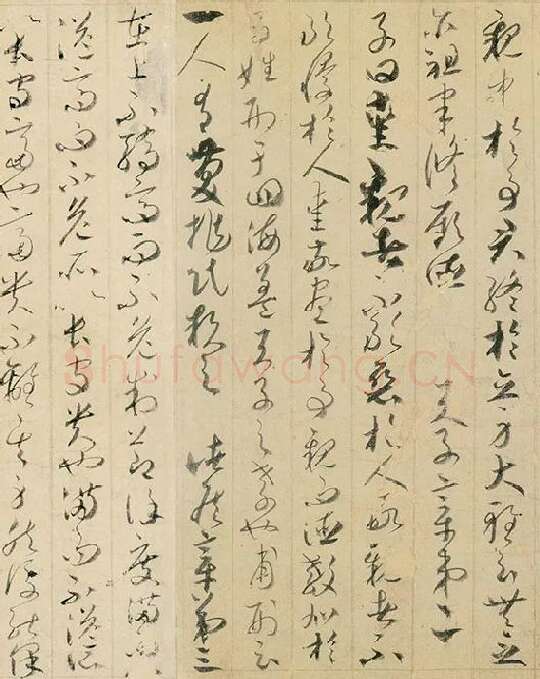 親中於事君終於立身大雅云無念
尒祖聿脩厥德 天子章第二
子曰愛親者不敢惡於人敬親者不
敢慢於人愛敬盡於事親而德教加於
百姓刑于四海蓋天子之孝也甫刑云
一人有慶兆民賴之 諸侯章第三
在上不驕高而不危制節謹度滿而不
溢高而不危所以長守貴也滿而不溢所
以長守富也富貴不離其身然後能保
shufawang.CN